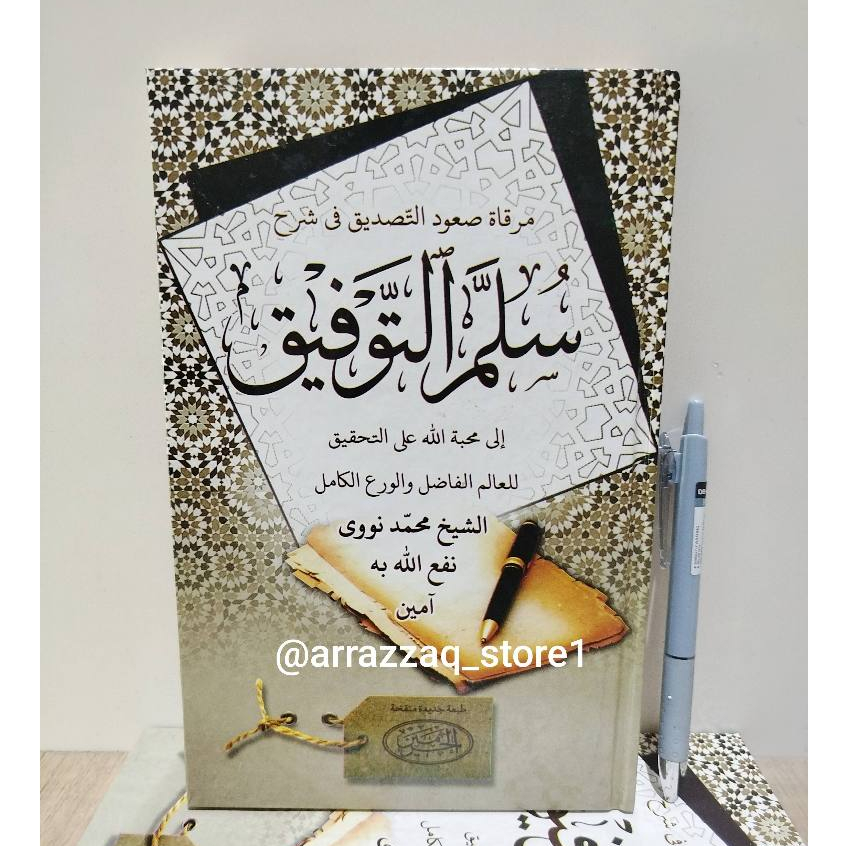 مرقاة صعود التّصديق فى شرح
سُلَّمُ التَّوْفيق
إلى محبة الله على التحقيق
للعالم الفاضل والورع الكامل
الشيخ محمّد نووى
نفع الله به
آمين
@arrazzaq_store1
طبعة جديدة منقحة
الحرمين